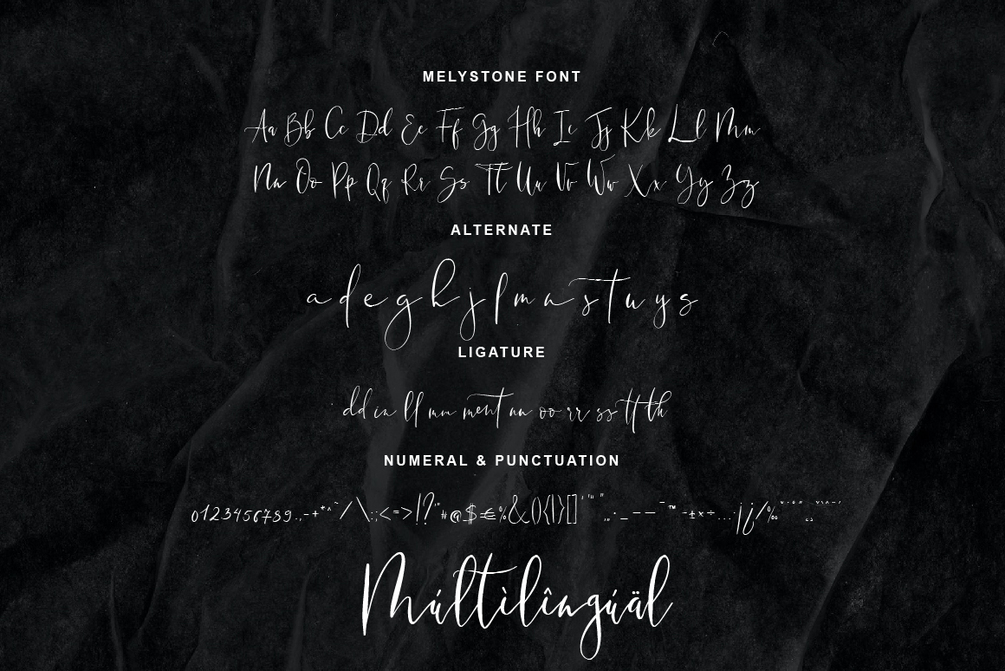 MELYSTONE FONT
Aa Bb Cc Dd Ee Ff Gg Hh Ii Jj Kk Ll Mm
Nn Oo Pp Qq Rr Ss Tt Uu Vv Ww Xx Yy Zz
ALTERNATE
a d e g h j l m n s t u y s
LIGATURE
dd in ll mm ment nn oo rr ss tt th
NUMERAL & PUNCTUATION
0123456789.,-+*^~/\:;<=>!?'"#@$€%&(){|}[]
Múltìlîngúäl